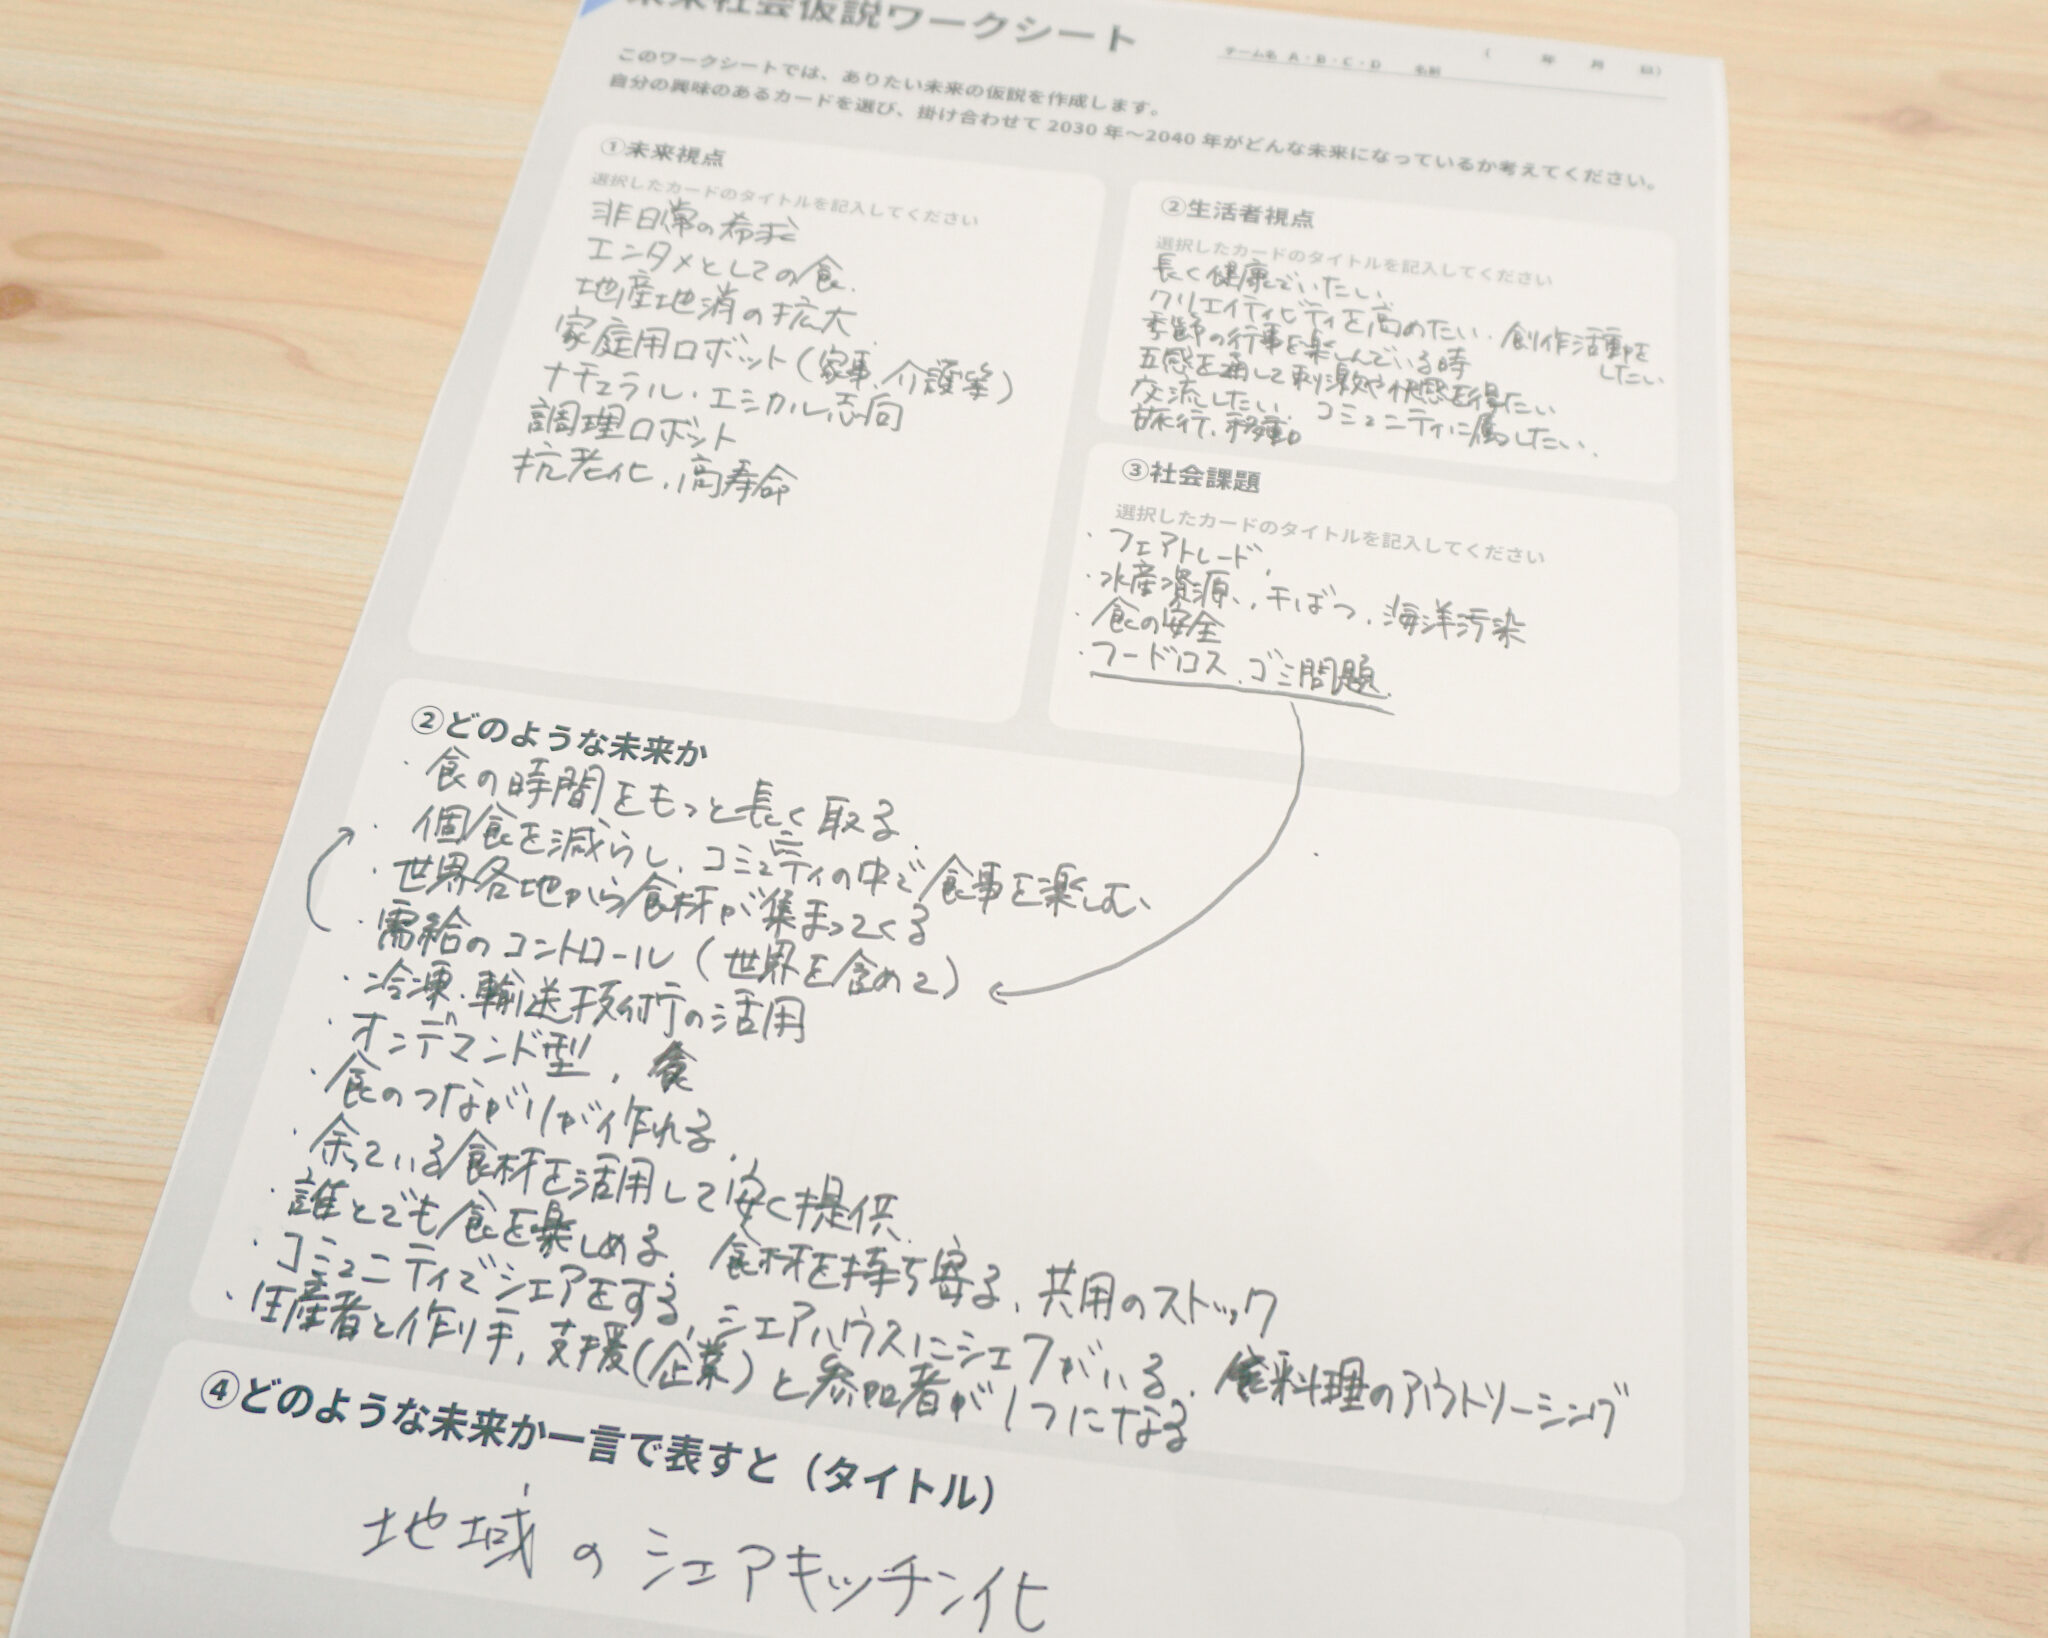 未来社会仮説ワークシート
チーム名 A・B・C・D 名前 ( 年 月 日)
このワークシートでは、ありたい未来の仮説を作成します。
自分の興味のあるカードを選び、掛け合わせて 2030 年〜2040 年がどんな未来になっているか考えてください。
①未来視点
選択したカードのタイトルを記入してください
非日常の希求
エンタメとしての食.
地産地消の拡大
家庭用ロボット(家事、介護等)
ナチュラル・エシカル志向
調理ロボット
抗老化、高寿命
②生活者視点
選択したカードのタイトルを記入してください
長く健康でいたい
クリエイティビティを高めたい・創作活動をしたい
季節の行事を楽しんでいる時
五感を通して刺激や快感を得たい
交流したい. コミュニティに属したい.
旅行、移動
③社会課題
選択したカードのタイトルを記入してください
・フェアトレード,
・水産資源、干ばつ、海洋汚染
・食の安全
・フードロス、ゴミ問題.
②どのような未来か
・食の時間をもっと長く取る
・個食を減らし、コミュニティの中で食事を楽しむ
・世界各地から食材が集まってくる
・需給のコントロール(世界を含めて)
・冷凍、輸送技術の活用
・オンデマンド型、食
・食のつながりが作れる.
・余っている食材を活用して安く提供
・誰とでも食を楽しめる 食材を持ち寄る、共用のストック
・コミュニティでシェアをする、シェアハウスにシェフがいる. 料理のアウトソーシング
・生産者と作り手、支援(企業)と参加者が1つになる
④どのような未来か一言で表すと(タイトル)
地域のシェアキッチン化